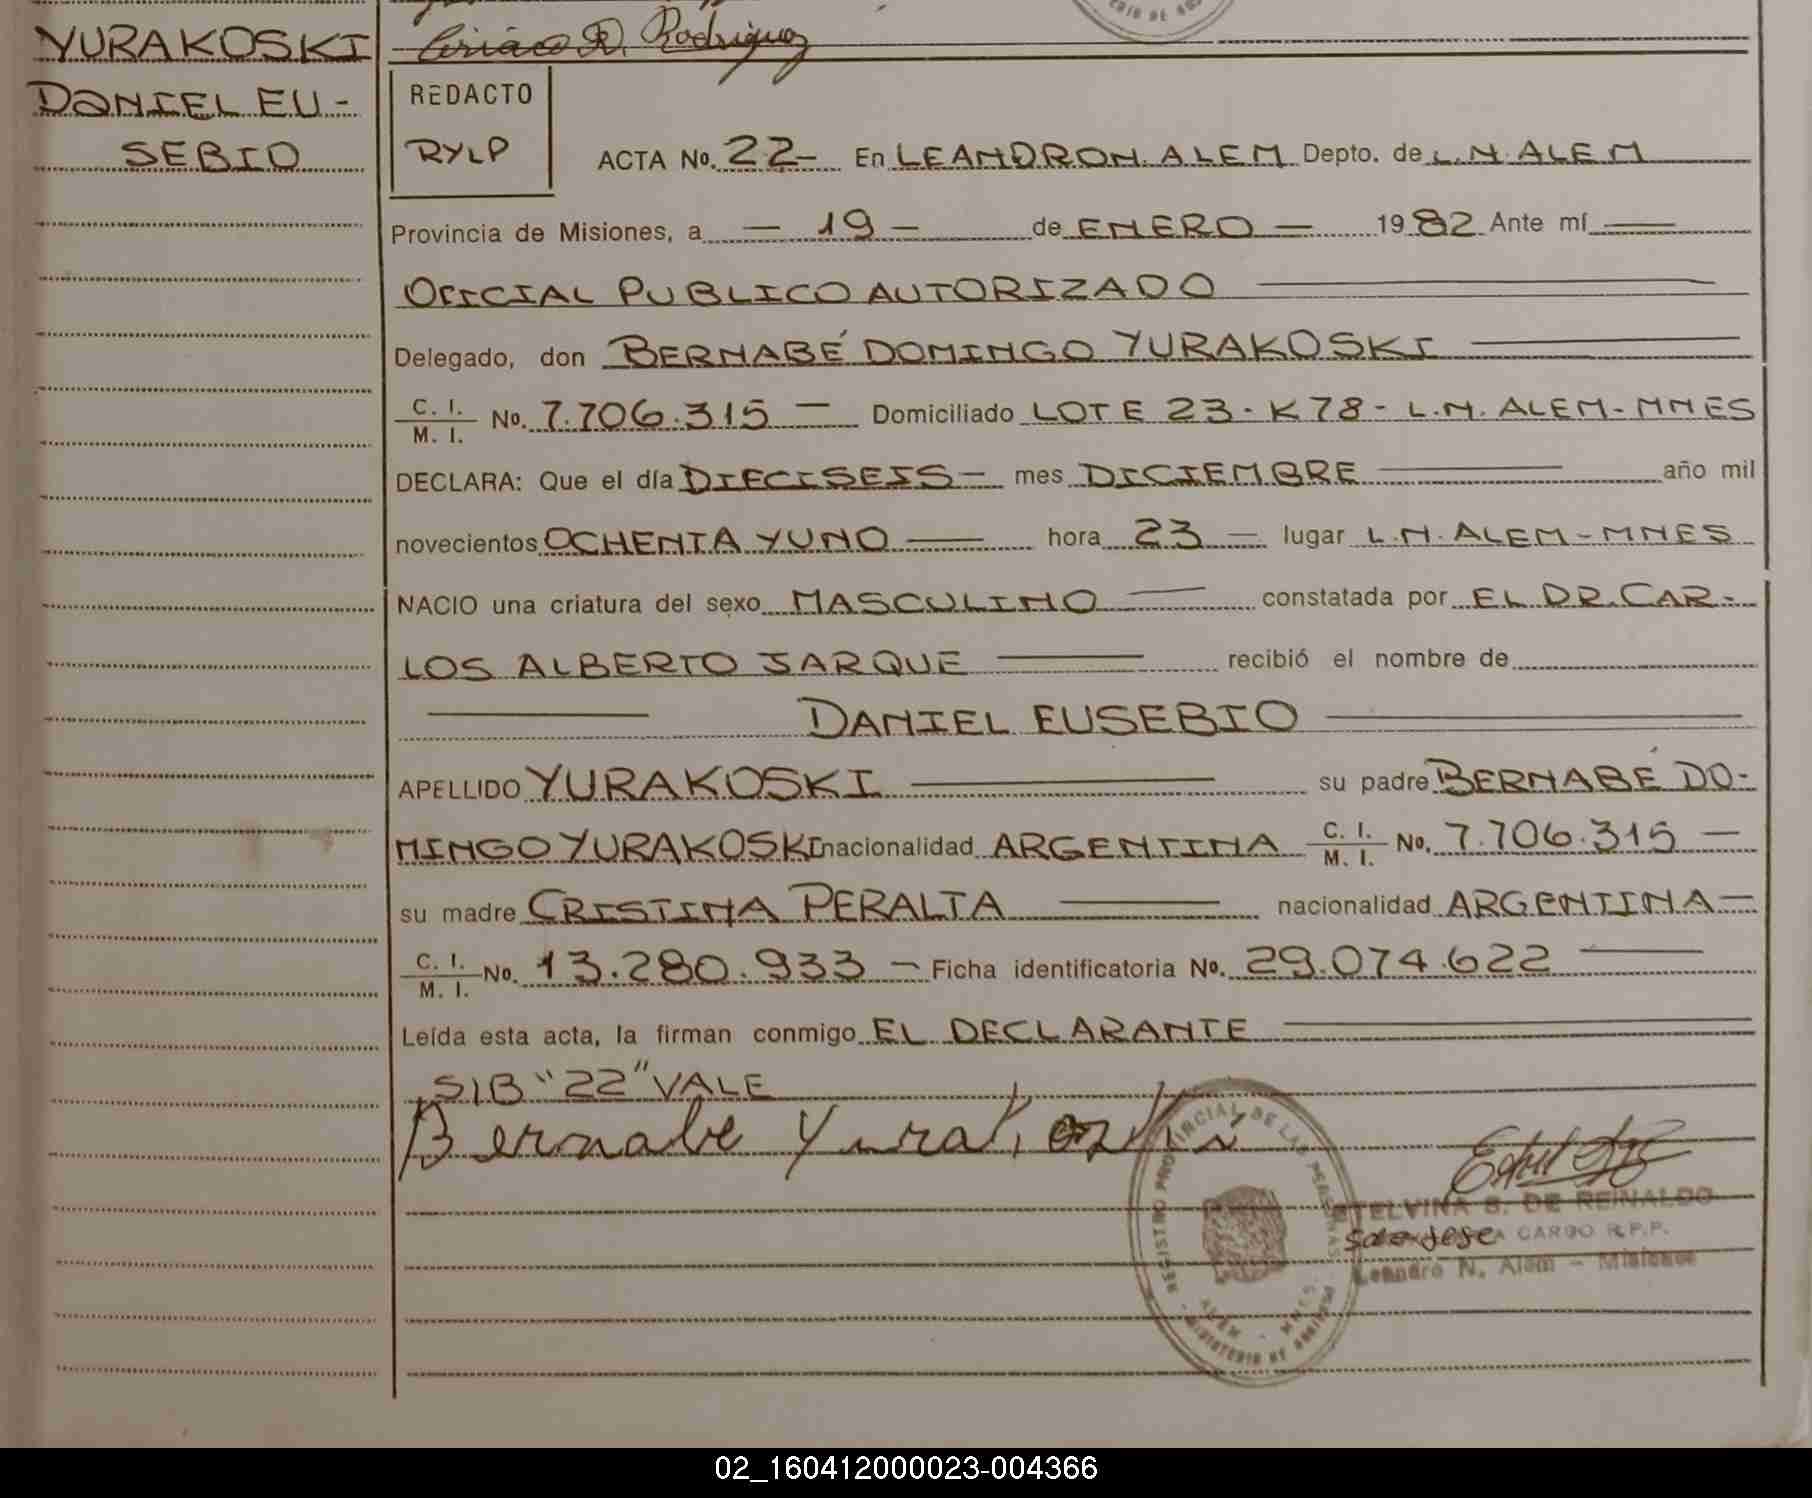 YURAKOSKI
DANIEL EU-
SEBIO
Ciriaco R. Rodriguez
REDACTO
RYLP
ACTA No. 22- En LEANDRO N. ALEM Depto. de L.N. ALEM
Provincia de Misiones, a - 19 - de ENERO - 1982 Ante mí
OFICIAL PUBLICO AUTORIZADO
Delegado, don BERNABÉ DOMINGO YURAKOSKI
C. I. / M. I. No. 7.706.315 - Domiciliado LOTE 23 - K78 - L.N. ALEM - MNES
DECLARA: Que el día DIECISEIS - mes DICIEMBRE año mil
novecientos OCHENTA Y UNO hora 23 - lugar L.N. ALEM - MNES
NACIO una criatura del sexo MASCULINO constatada por EL DR. CAR-
LOS ALBERTO JARQUE recibió el nombre de
DANIEL EUSEBIO
APELLIDO YURAKOSKI su padre BERNABÉ DO-
MINGO YURAKOSKI nacionalidad ARGENTINA C. I. / M. I. No. 7.706.315 -
su madre CRISTINA PERALTA nacionalidad ARGENTINA -
C. I. / M. I. No. 13.280.933 - Ficha identificatoria No. 29.074.622
Leída esta acta, la firman conmigo EL DECLARANTE
S/B "22" VALE
Bernabe Yurakoski
REGISTRO PROVINCIAL DE LAS PERSONAS
ALEM - MNES
MINISTERIO DE GOBIERNO
ETELVINA S. DE REINALDO
A CARGO R.P.P.
Leandro N. Alem - Misiones
02_160412000023-004366